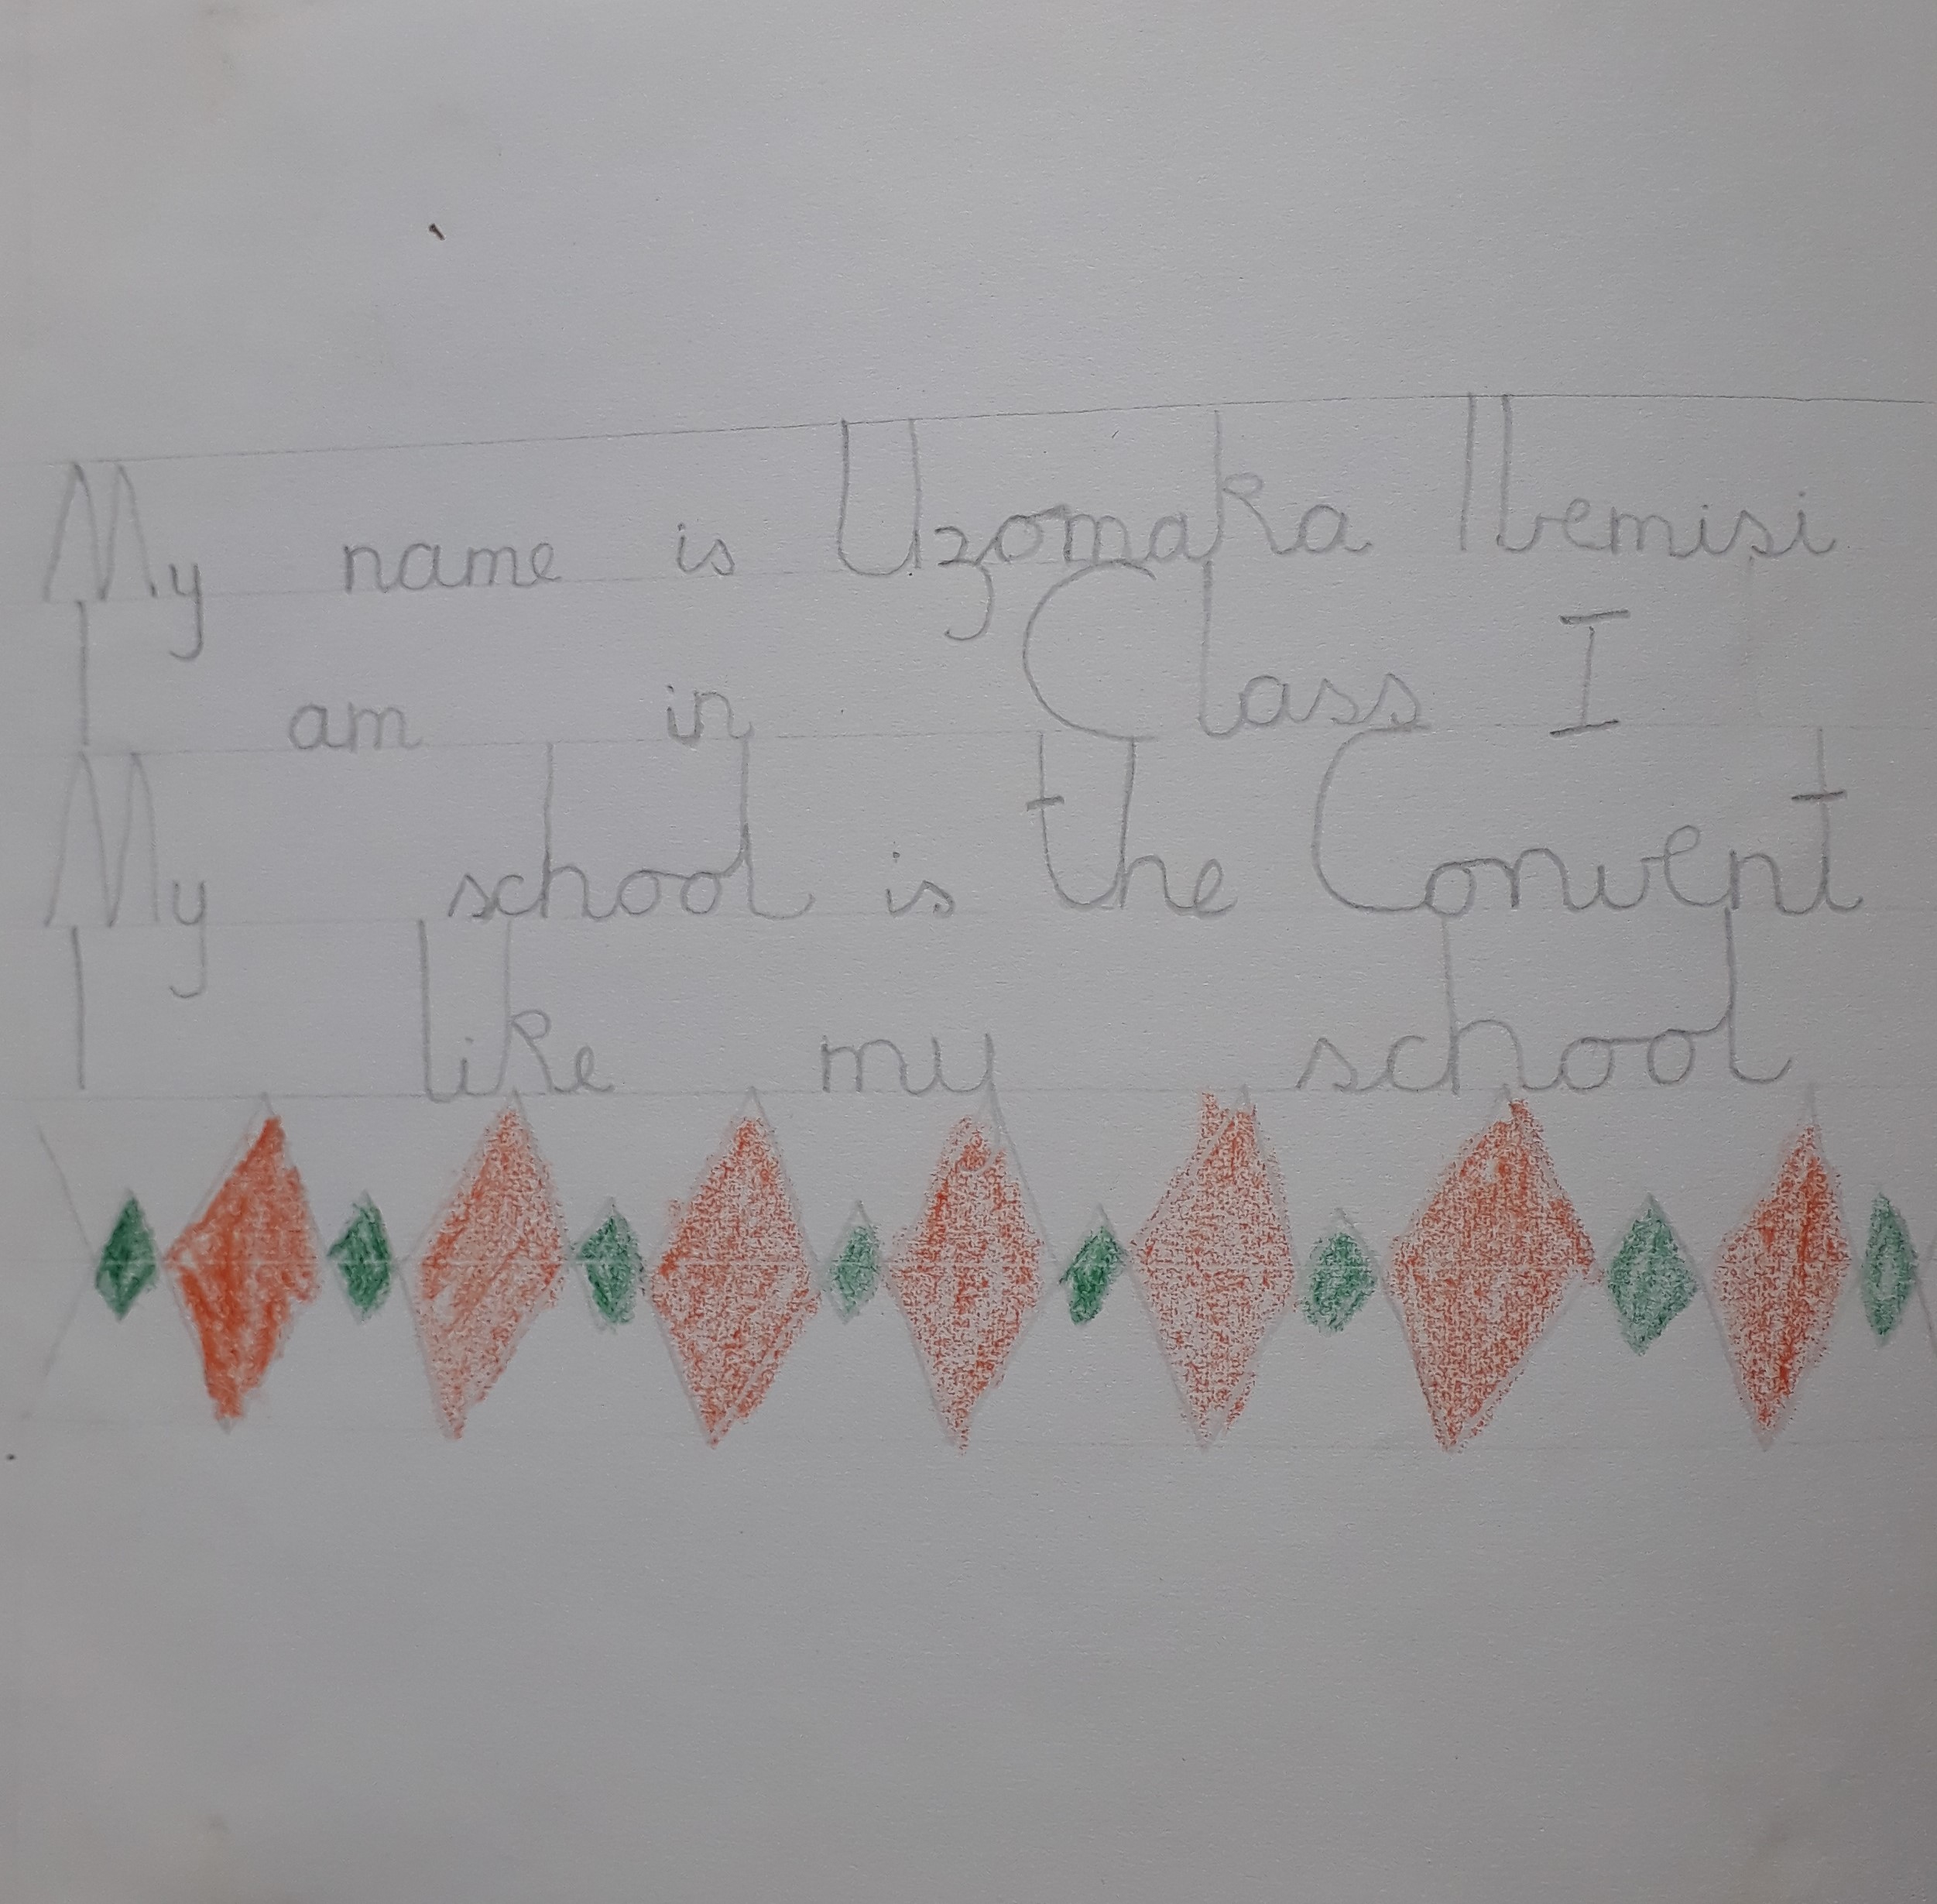 My name is Uzomaka Ibemisi
I am in Class I
My school is the Convent
I like my school